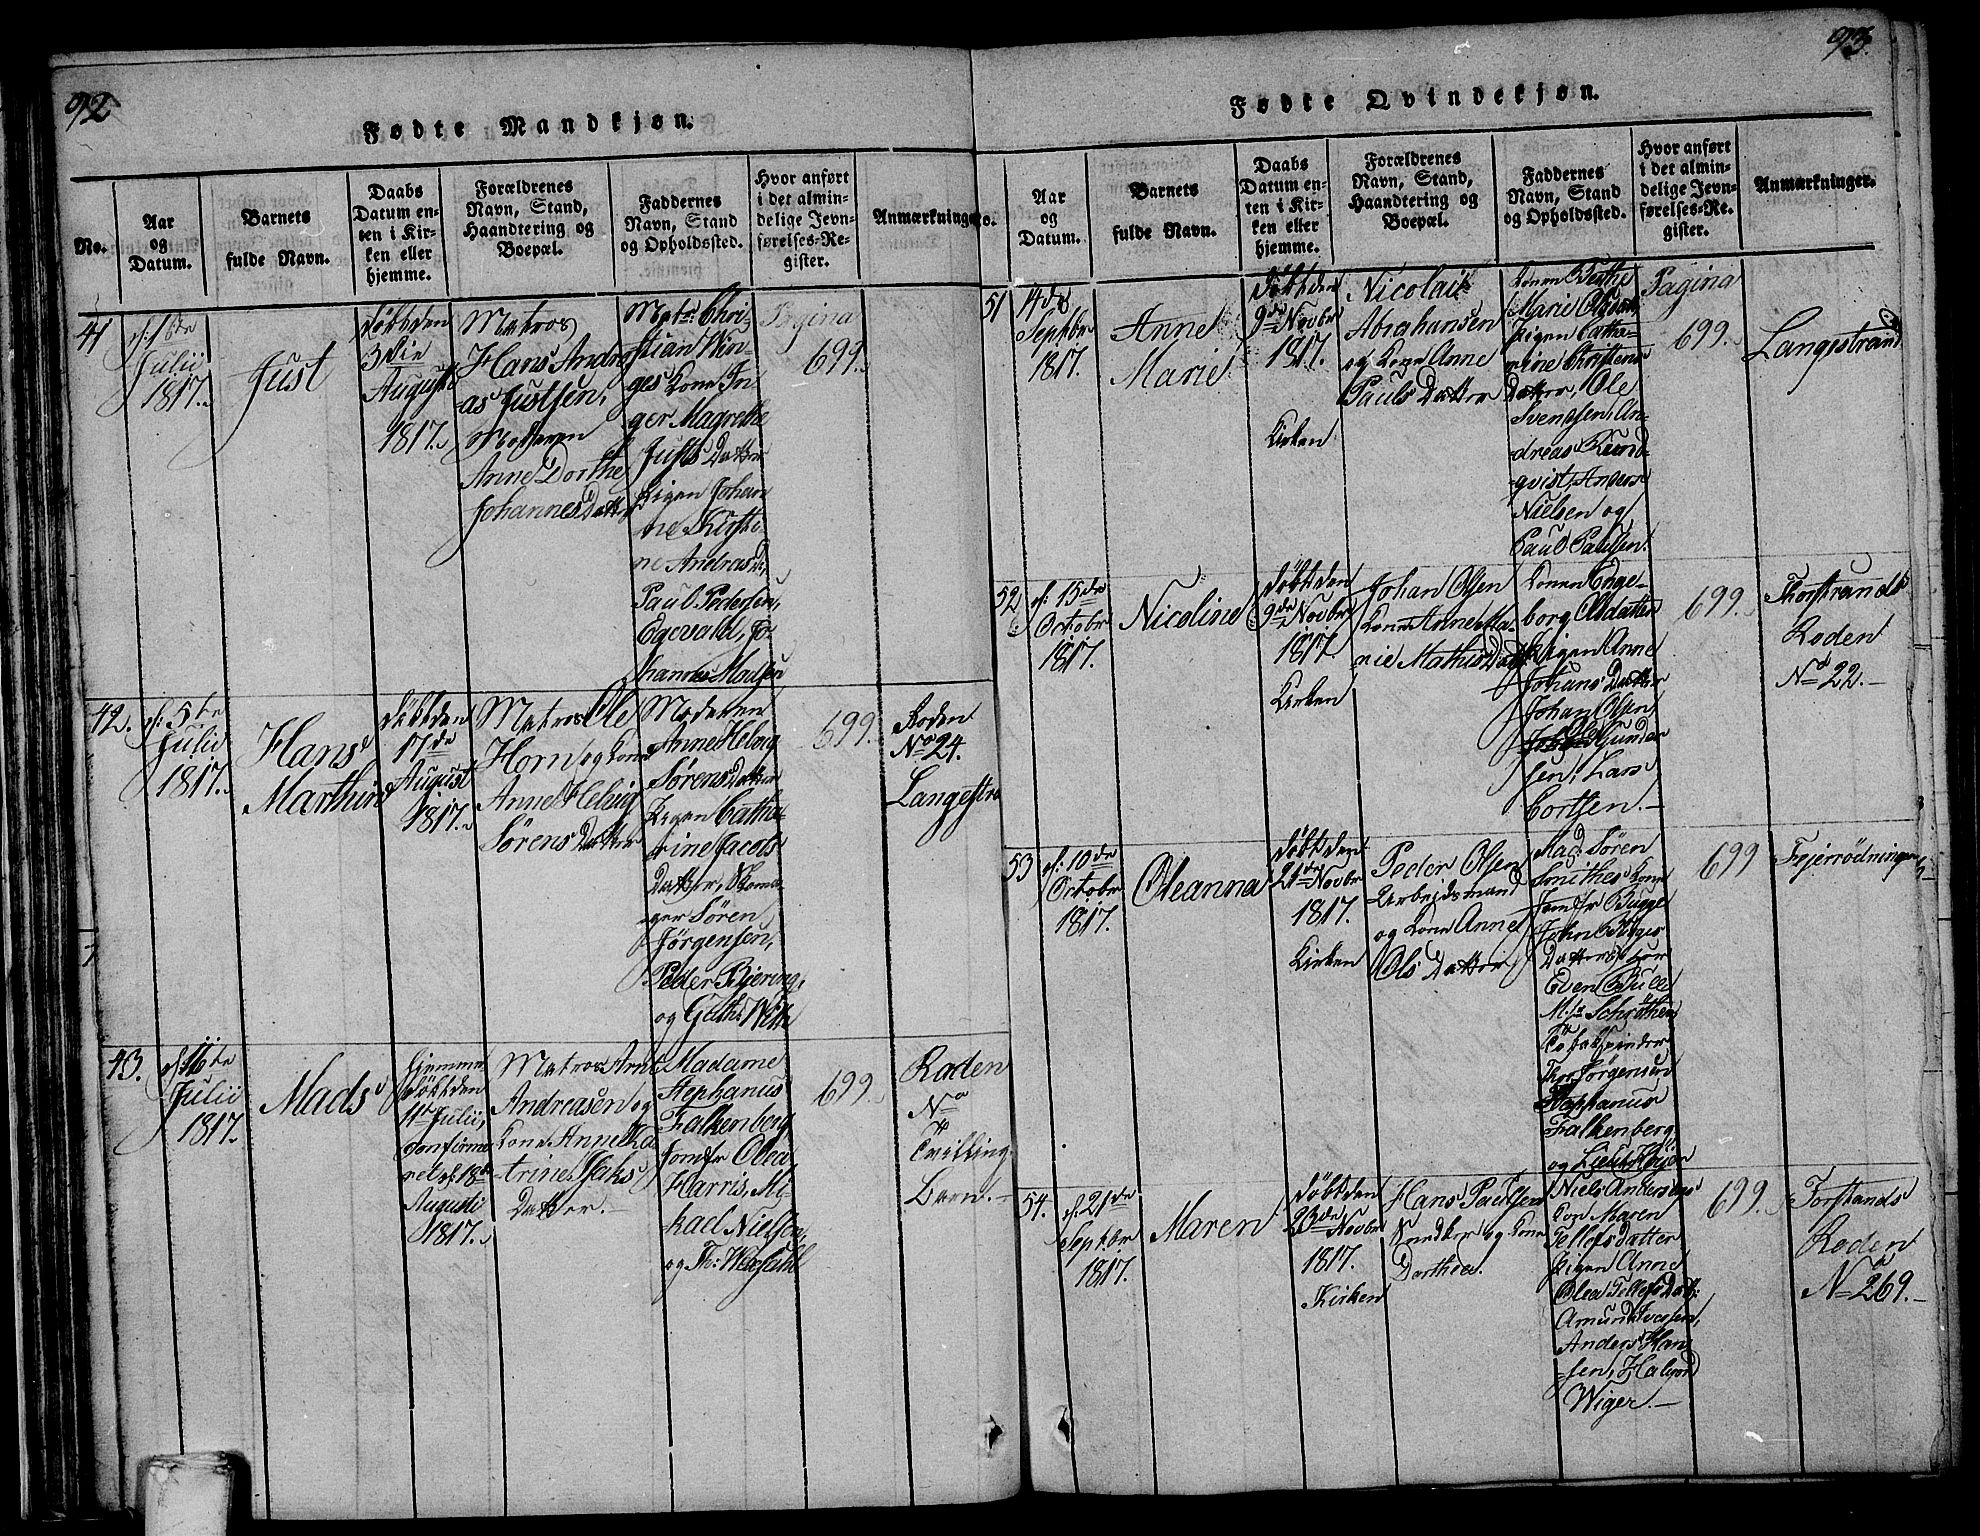 92
Fødte Mandkjøn.
No.
Aar
og
Datum.
Barnets
fulde Navn.
Daabs
Datum en-
ten i Kir-
ken eller
hjemme.
Forældrenes
Navn, Stand,
Haandtering og
Boepæl.
Faddernes
Navn, Stand
og Opholdssted.
Hvor anført
i det almin-
delige Jevn-
førelses-Re-
gister.
Anmærkninger
41
Julii
1817.
Just
døbt den
3die
August
1817.
Matros
Hans Andre
as Justsen,
Moderen
Anne Dorthe
Johannes Datter
Matr: Chri-
stian Win-
ges Kone In-
ger Magrethe
Justs Datter
Pigen Johan
ne Kirsti-
ne Andreas D.
Paul Pedersen,
Egevald, Jo-
hannes Madsen
Pagina
699.
42.
d: 5te
Julii
1817.
Hans
Marthin
døbt den
17de
August
1817.
Matros Ole
Horn og Kone
Anne Helvig
Sørens Datter
Moderen
Anne Helvig
Sørens Datter
Pigen Catha-
rine Jacobs
Datter,
ger Søren
Jørgensen,
Peder Bjering,
og
699.
Roden
No 24.
Langestra
43.
d: 11te
Julii
1817.
Mads
hjemme
døbt den
Julii,
confirme
ret d: 18de
Augusti
1817.
Matros
Andreasen og
Kone Anne Ka
trine Isaks
Datter.
Madame
Stephanus
Falkenberg
Jomfr Olea
Harris, Mi-
kael Nielsen,
og
699.
Roden
No
4
Tvilling
Barn.
93.
Fødte Qvindekjøn.
No.
Aar
og
Datum.
Barnets
fulde Navn.
Daabs
Datum en-
ten i Kir-
ken eller
hjemme.
Forældrenes
Navn, Stand,
Haandtering og
Boepæl.
Faddernes
Navn, Stand
og Opholdssted.
Hvor anført
i det almin-
delige Jevn-
førelses-Re-
gister.
Anmærkninger.
51
14de
Septbr
1817.
Anne
Marie
døbt den
9de Novbr
1817.
Kirken
Nicolai
Abrahansen
og Kone Anne
Pauls Datter
Konen Berthe
Marie Olsdatt
Pigen Catha-
rine Christens
Datter, Ole
Svendsen, An-
dreas Rund-
qvist, Anders
Nielsen og
Paul Paulsen.
Pagina
699.
Langestrand
52
d: 15de
Octobr
1817.
Nicoline
døbt den
9de Novbr
1817.
Kirken
Johan Olsen
Kone Anne Ma-
rie Mathis Datt
Konen Inge-
borg Olsdatter
Pigen Anne
Johans Datter
Johan Olsen
Ole Gunder
sen, Lars
Cortsen.
699.
Thorstrands
Roden
No 22.
53
d: 10de
Octobr
1817.
Oleanna
døbt den
21de Novbr
1817.
Kirken
Peder Olsen
Arbeidsmand
og Kone Anne
Ols Datter
Mad. Søren
Smithes Kone
Jomfr Bugge
John Bugges
Datter,
Even Bulle
M. Schrøther
Tobakspinder
Thor Jørgensen
Staphanus
Falkenberg
og
699
54.
d: 21de
Septbr
1817.
Maren
døbt den
23de Novbr
1817.
Kirken
Hans Paulsen
Snedker og Kone
Dorthea.
Niels Andersens
Kone Maren
Tellefsdatter
Pigen Anne
Olea Tellefs Datt:
Amund Iversen,
Anders Han
sen, Halvor
Wiger.
699.
Torstrands
Roden
No 269.